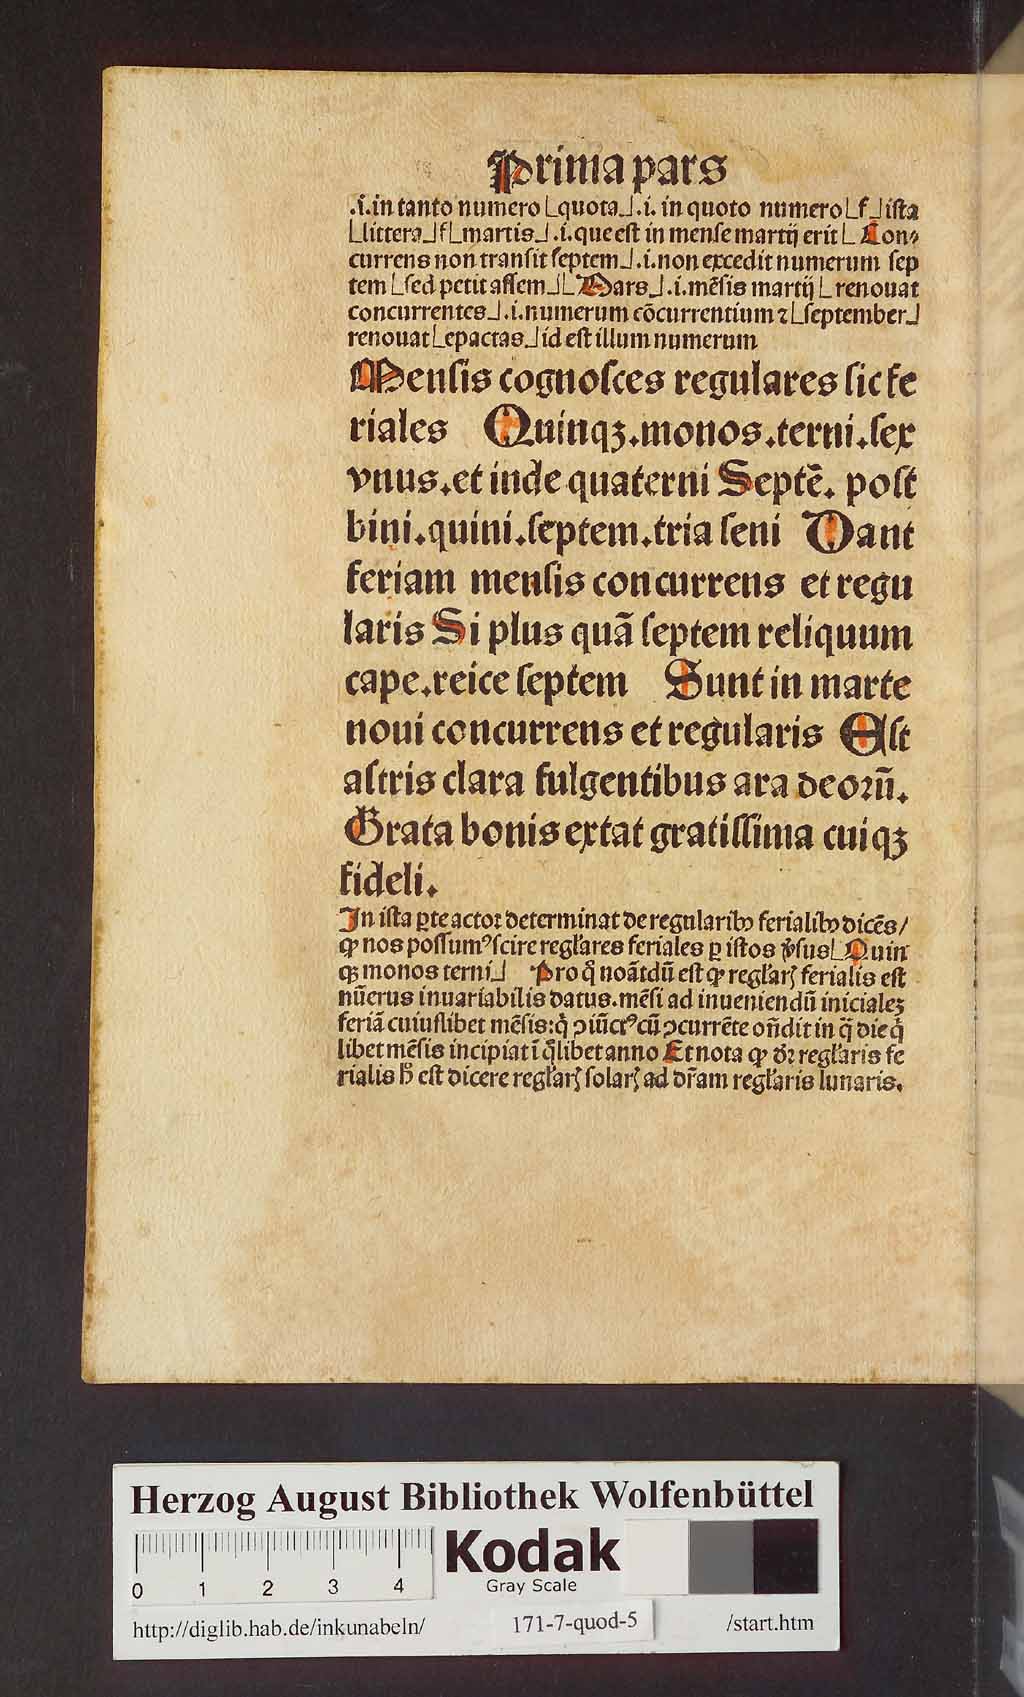 Prima pars
.i. in tanto numero ⌊quota⌋ .i. in quoto numero ⌊f⌋ ista
⌊littera⌋ f ⌊martis⌋ .i. que est in mense martij erit ⌊Con⸗
currens non transit septem⌋ .i. non excedit numerum sep
tem ⌊sed petit assem⌋ ⌊Mars⌋ .i. mēsis martij ⌊renouat
concurrentes⌋ .i. numerum cōcurrentium ⁊ ⌊september⌋
renouat ⌊epactas⌋ id est illum numerum
Mensis cognosces regulares sic fe
riales Quinqꝫ.monos.terni.sex
vnus.et inde quaterni Septē. post
bini.quini.septem.tria seni Dant
feriam mensis concurrens et regu
laris Si plus quā septem reliquum
cape.reice septem Sunt in marte
noui concurrens et regularis Est
astris clara fulgentibus ara deorū.
Grata bonis extat gratissima cuiqꝫ
fideli.
In ista ꝑte actor determinat de regularibꝰ ferialibꝰ dicēs/
ꝙ nos possumꝰ scire regl'ares feriales ꝑ istos v̓sus ⌊Quin
qꝫ monos terni⌋ Pro qͦ noātdū est ꝙ regl'arꝭ ferialis est
nūerus inuariabilis datus.mēsi ad inueniendū inicialeꝫ
feriā cuiuslibet mēsis: qͥ ꝯiūctꝰ cū ꝯcurrēte oñdit in q̄ die qͥ
libet mēsis incipiat ī qͦlibet anno Et nota ꝙ dꝛ regl'aris fe
rialis hͦ est dicere regl'arꝭ solarꝭ ad dr̄am regl'aris lunaris.
Herzog August Bibliothek Wolfenbüttel
Kodak
Gray Scale
0 1 2 3 4
http://diglib.hab.de/inkunabeln/ 171-7-quod-5 /start.htm